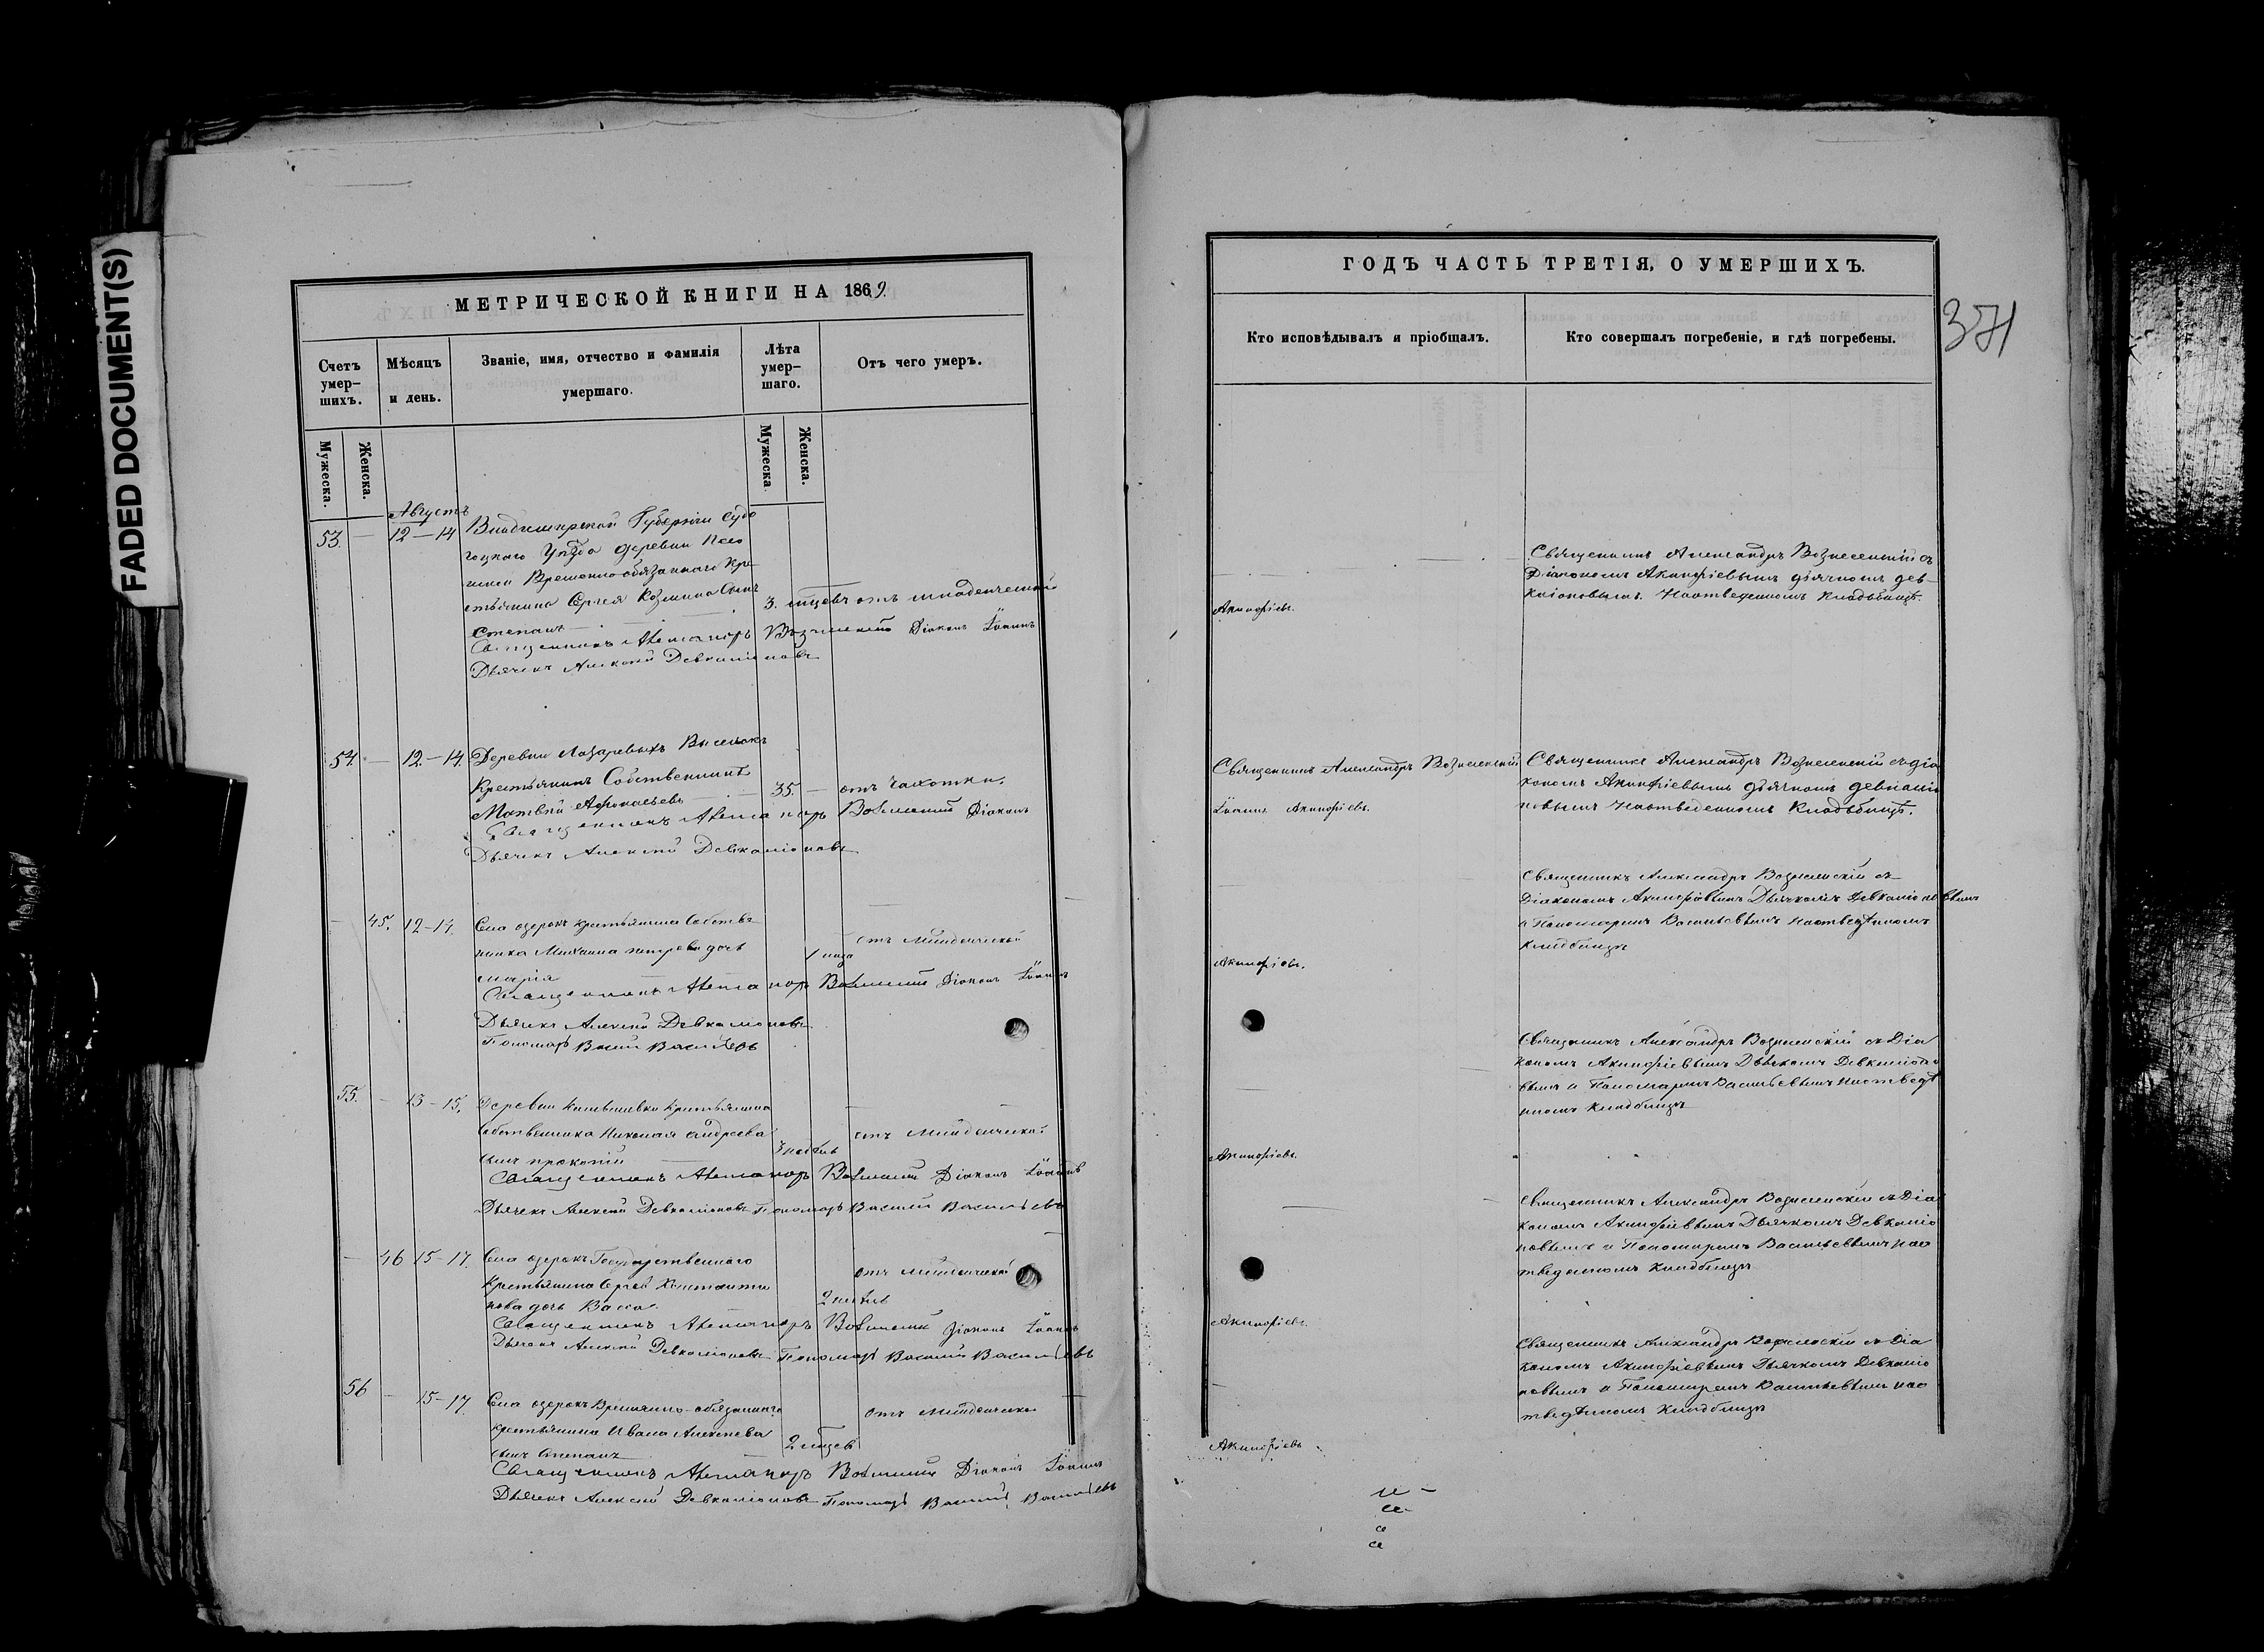 FADED DOCUMENT(S)
МЕТРИЧЕСКОЙ КНИГИ НА 1869.
Счетъ умер-шихъ.
Мѣсяцъ и день.
Званіе, имя, отчество и фамилія умершаго.
Лѣта умер-шаго.
Отъ чего умеръ.
Мужеска.
Женска.
Мужеска
Женска.
Августъ
53. — 12—14 Владимирской Губерніи Судо
годкого Уѣзда деревни
Временно-обязаннаго Кре
стьянина Сергея Козмина Сынъ
Степанъ 3. мцевъ отъ младенческой
Священникъ Александръ Вознесенскій Діаконъ Іоаннъ
Дьячекъ Алексѣй Девкаліоновъ
54. — 12.—14. Деревни Лазаревыхъ Выселокъ
Крестьянинъ Собственникъ
Матвѣй Афонасьевъ 35. — отъ чахотки.
Священникъ Александръ Вознесенскій Діаконъ
Дьячекъ Алексѣй Девкаліоновъ
— 45. 12—14. Села озерокъ крестьянина Собстве
нника Михаила дочь
марія отъ Младенческой
Священникъ Александръ Вознесенскій Діаконъ Іоаннъ
Дьячекъ Алексѣй Девкаліоновъ
Пономарь Васильевъ
55. — 13—15. Деревни крестьянина
собственника Николая андреева
сынъ прокопій 3 недѣль отъ Младенческой
Священникъ Александръ Вознесенскій Діаконъ Іоаннъ
Дьячекъ Алексѣй Девкаліоновъ Пономарь Василій Васильевъ
— 46 15—17. Села озерокъ Государственнаго
крестьянина Сергея Константи
нова дочь Васса 2 недѣль отъ Младенческой
Священникъ Александръ Вознесенскій Діаконъ Іоаннъ
Дьячекъ Алексѣй Девкаліоновъ Пономарь Василій Васильевъ
56 — 15—17 Села озерокъ Временно-обязаннаго
крестьянина Ивана Алексѣева
сынъ Степанъ 2 мѣцевъ отъ Младенческой
Священникъ Александръ Вознесенскій Діаконъ Іоаннъ
Дьячекъ Алексѣй Девкаліоновъ Пономарь Василій Васильевъ
ГОДЪ ЧАСТЬ ТРЕТІЯ, О УМЕРШИХЪ.
371
Кто исповѣдывалъ и пріобщалъ.
Кто совершалъ погребеніе, и гдѣ погребены.
Священникъ Александръ Вознесенскій съ
Діакономъ Акинфіевымъ дьячкомъ Дев-
каліоновымъ. На отведенномъ кладбищѣ.
Акинфіевъ.
Священникъ Александръ Вознесенскій
Іоаннъ Акинфіевъ.
Священникъ Александръ Вознесенскій съ діа
кономъ Акинфіевымъ дьячкомъ девкаліо
новымъ На отведенномъ кладбищѣ.
Священникъ Александръ Вознесенскій съ
Діакономъ Акинфіевымъ Дьячкомъ Девкаліоновымъ
и Пономаремъ Васильевымъ на отведенномъ
кладбищѣ
Акинфіевъ.
Священникъ Александръ Вознесенскій съ Діа
кономъ Акинфіевымъ Дьячкомъ Девкаліоно
вымъ и Пономаремъ Васильевымъ на отведе
нномъ кладбищѣ
Акинфіевъ.
Священникъ Александръ Вознесенскій съ Діа
кономъ Акинфіевымъ Дьячкомъ Девкаліо
новымъ и Пономаремъ Васильевымъ на о
тведенномъ кладбищѣ
Акинфіевъ.
Священникъ Александръ Вознесенскій съ Діа
кономъ Акинфіевымъ Дьячкомъ Девкаліо
новымъ и Пономаремъ Васильевымъ на о
тведенномъ кладбищѣ
Акинфіевъ